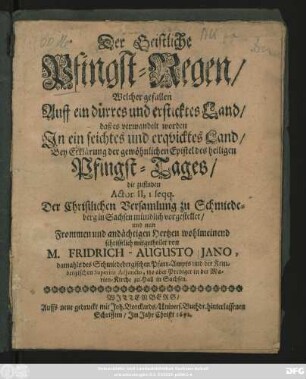 Der Geistliche
Pfingst-Regen/
Welcher gefallen
Auff ein dürres und ersticktes Land/
daß es verwandelt worden
In ein feichtes und erqvicktes Land/
Bey Erklärung der gewöhnlichen Epistel des heiligen
Pfingst-Tages/
die zu finden
Actor. II, 1 seqq.
Der Christlichen Versamlung zu Schmiede-
berg in Sachsen mündlich vorgestellet/
und nun
Frommen und andächtigen Hertzen wohlmeinend
schrifftlich mitgetheilet von
M. FRIDRICH-AUGUSTO JANO,
damahls des Schmiedebergischen Pfarr-Amptes und der Kem-
bergischen Superint. Adjuncto, itzo aber Prediger in der
Kirche zu Hall in Sachsen.
WITTENBERG/
Auffs neue gedruckt mit Joh. Borckards/Univers. Buchdr. hinterlassenen
Schrifften/ Im Jahr Christi